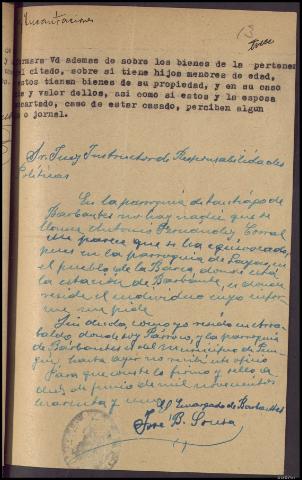 Incautaciones
13
trece
rmara Vd ademas de sobre los bienes de la pertenen
el citado, sobre si tiene hijos menores de edad,
stos tienen bienes de su propiedad, y en su caso
e y valor dellos, asi como si estos y la esposa
cartado, caso de estar casado, perciben algun
o jornal.
Sr. Juez Instructor de Responsabilidades
Políticas
En la parroquia de Santiago de
Barbantes no hay nadie que se
llame Antonio Fernandez Corral
Me parece que se ha equivocado,
pues en la parroquia de Layas, en
el pueblo de la Barca, donde está
la estación de Barbantes, es donde
reside el individuo cuyo infor
me me pide
Sin duda, como yo resido en
donde soy Párroco, y la parroquia
de Barbantes es del municipio de
hasta ayer no recibí su oficio
Para que conste lo firmo y sello a
diez de junio de mil novecientos
cuarenta y uno
El Encargado de Barbantes
José B. Sousa